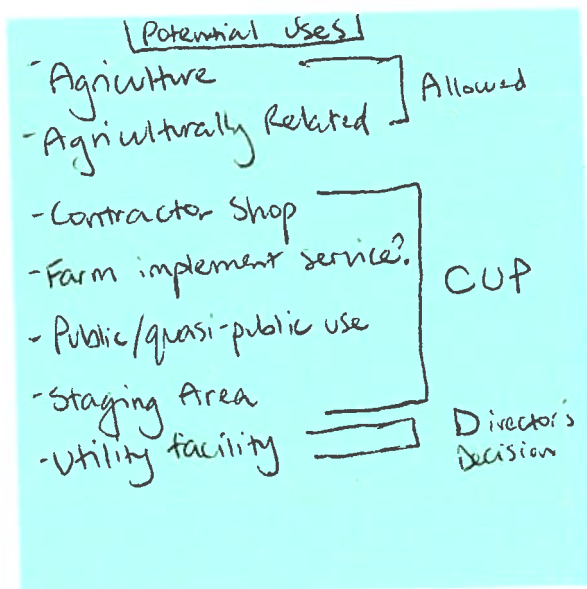 Potential Uses
- Agriculture
- Agriculturally Related
Allowed
- Contractor Shop
- Farm implement service?
- Public/quasi-public use
- Staging Area
CUP
- Utility facility
Director's
Decision